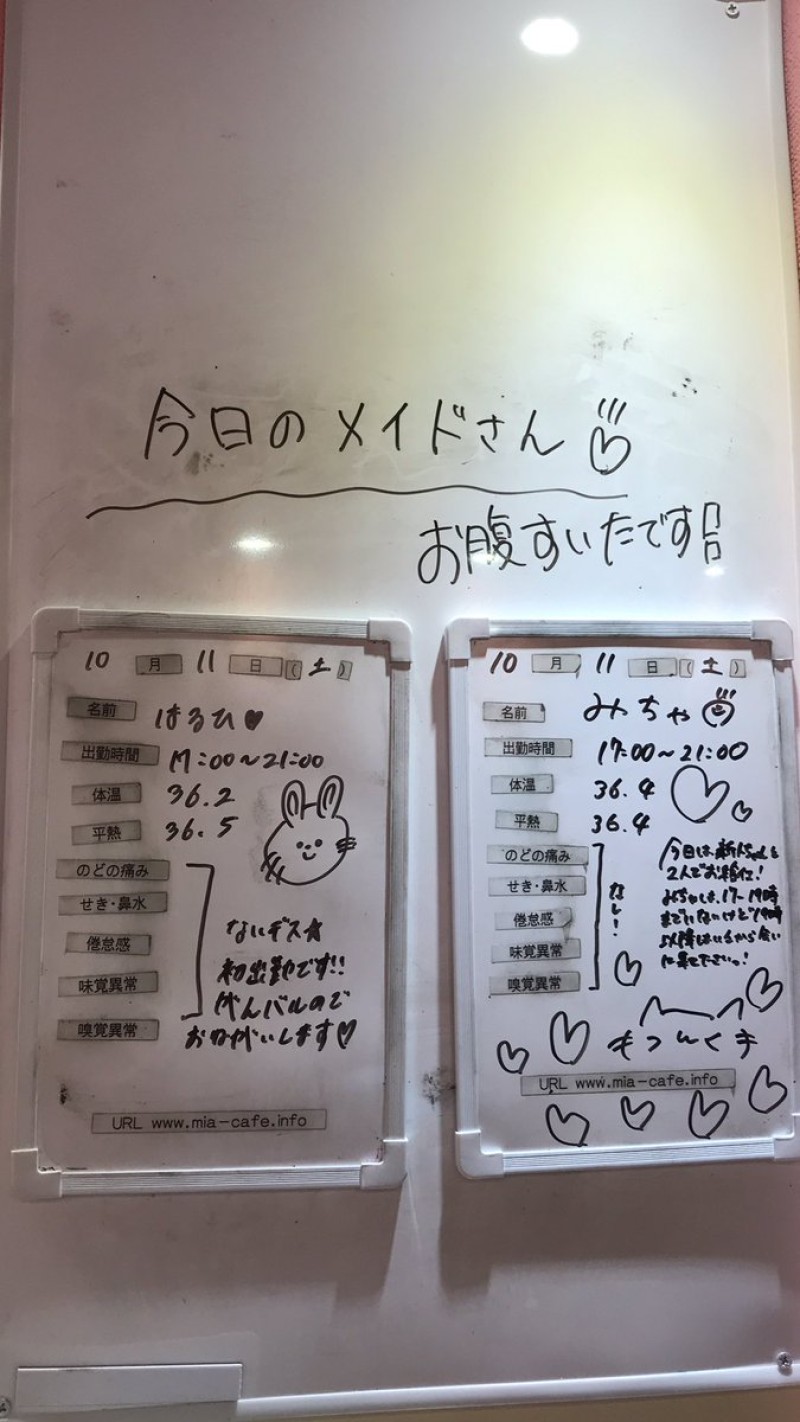 今日のメイドさん
お腹すいたです
10 月 11 日 (土)
名前 はるひ♥
出勤時間 17:00~21:00
体温 36.2
平熱 36.5
のどの痛み
せき・鼻水
倦怠感
味覚異常
嗅覚異常
ないデス★
初出勤です!!
がんバルので
おねがいします♡
URL www.mia-cafe.info
10 月 11 日 (土)
名前 みちゃ
出勤時間 17:00~21:00
体温 36.4
平熱 36.4
のどの痛み
せき・鼻水
倦怠感
味覚異常
嗅覚異常
なし!
今日は、新人ちゃんと
2人でお給仕!
みちゃは、17-19時
までいないけど19時
以降はいるから会い
に来て下さいっ!
URL www.mia-cafe.info